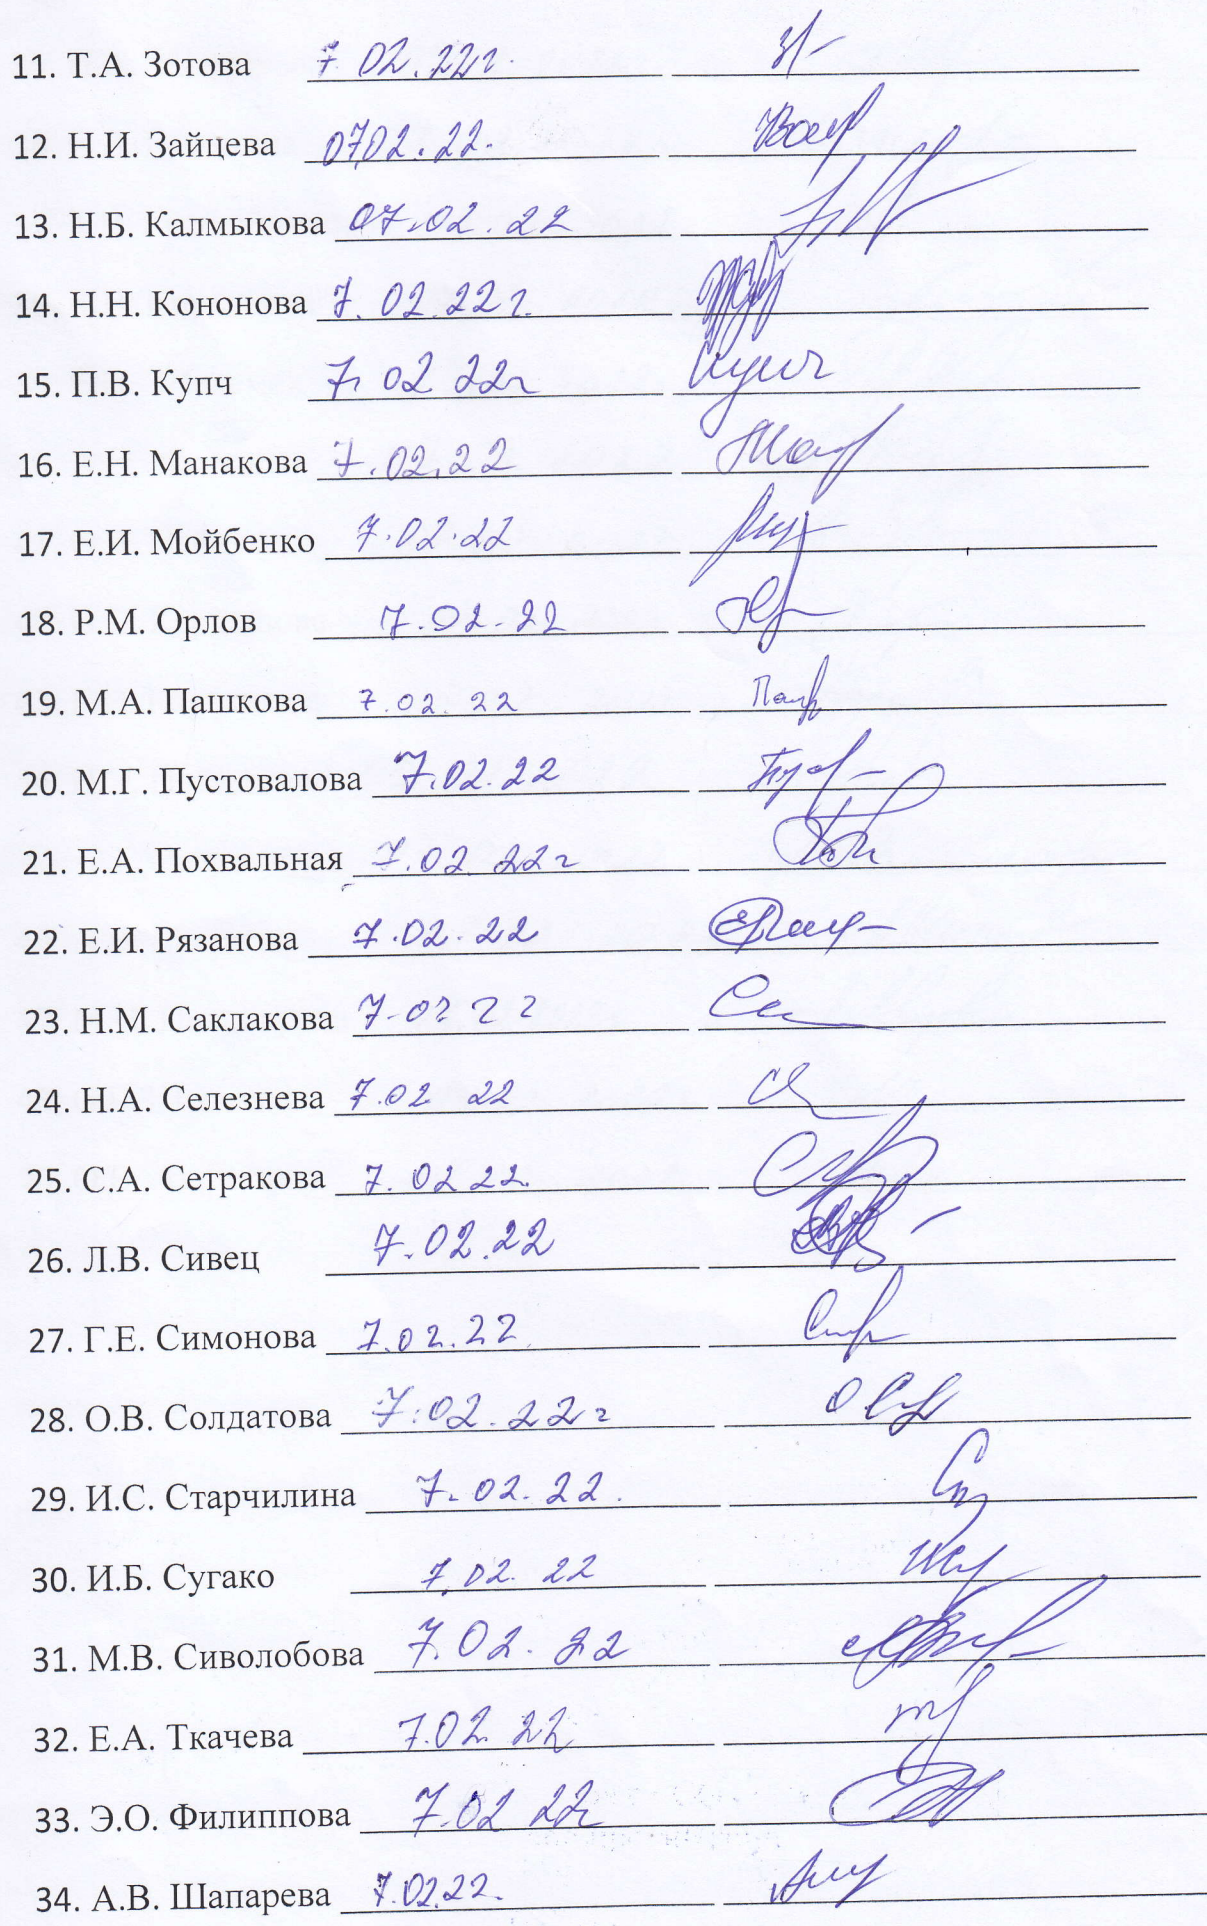 11. Т.А. Зотова 7 02.22г.
12. Н.И. Зайцева 0702.22.
13. Н.Б. Калмыкова 07.02.22
14. Н.Н. Кононова 7.02.22г.
15. П.В. Купч 7. 02 22г
16. Е.Н. Манакова 7.02.22
17. Е.И. Мойбенко 7.02.22
18. Р.М. Орлов 7.02.22
19. М.А. Пашкова 7.02.22
20. М.Г. Пустовалова 7.02.22
21. Е.А. Похвальная 7.02 22г
22. Е.И. Рязанова 7.02.22
23. Н.М. Саклакова 7-02 22
24. Н.А. Селезнева 7.02 22
25. С.А. Сетракова 7.02 22.
26. Л.В. Сивец 7.02.22
27. Г.Е. Симонова 7.02.22
28. О.В. Солдатова 7.02.22г
29. И.С. Старчилина 7.02.22.
30. И.Б. Сугако 7.02.22
31. М.В. Сиволобова 7.02.22
32. Е.А. Ткачева 7.02.22
33. Э.О. Филиппова 7.02 22г
34. А.В. Шапарева 7.02.22.